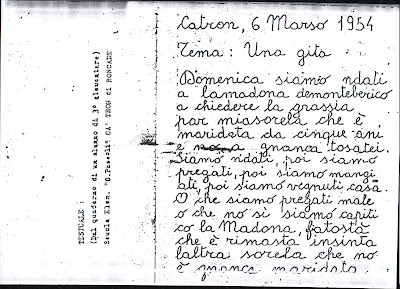 Catron, 6 Marso 1954
Tema: Una gita
Domenica siamo ndati
a lamadona demonteberico
a chiedere la grassia
par miasorela che è
maridata da cinque ani
e no a gnanca tosatei.
Siamo ndati, poi siamo
pregati, poi siamo mangi
ati, poi siamo vegnuti casa.
O che siamo pregati male
o che no si siamo capiti
co la Madona, fatostà
che è rimasta insinta
laltra sorela che no
è gnanca maridata.
TESTUALE:
(Dal quaderno di un alunno di 3° elementare)
Scuola Elem. "G.Pascoli" CA' TRON di RONCADE